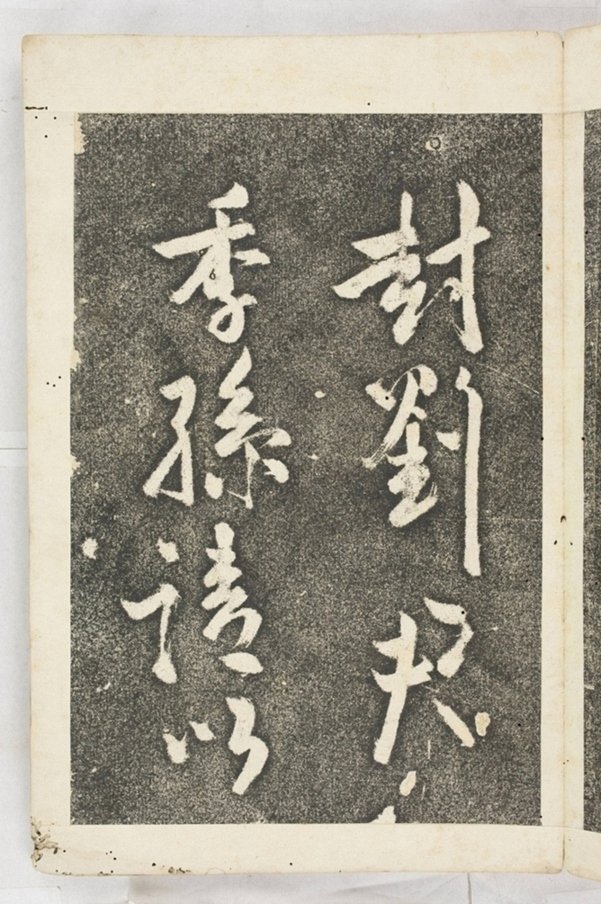 封劉
季孫請以